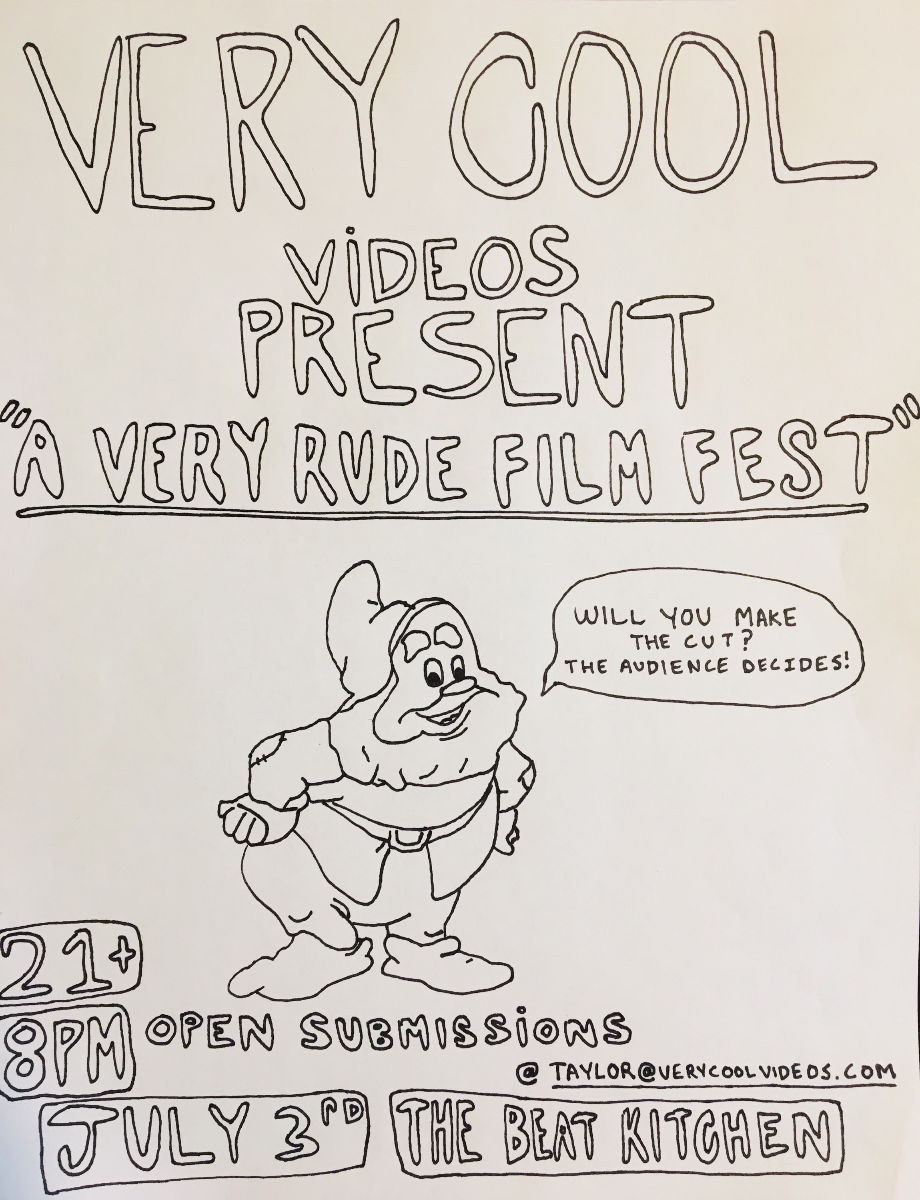 VERY COOL
ViDEOS
PRESENT
"A VERY RUDE FILM FEST"
WILL YOU MAKE
THE CUT?
THE AUDIENCE DECIDES!
21+
8PM
OPEN SUBMISSiONS
@ TAYLOR@VERYCOOLVIDEOS.COM
JULY 3RD THE BEAT KITCHEN